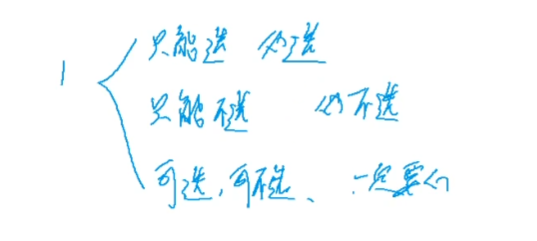 只能选 必选
1
只能不选 必不选
可选,可不选、一定要